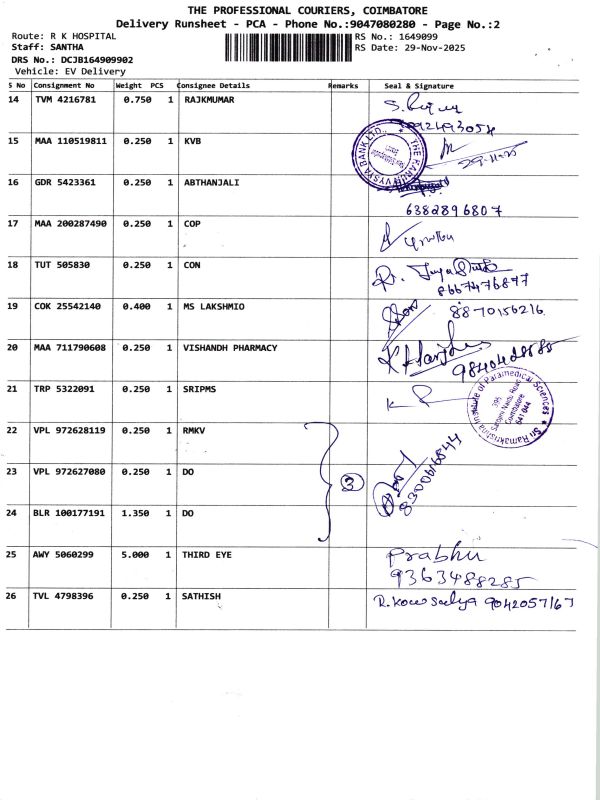 THE PROFESSIONAL COURIERS, COIMBATORE
Delivery Runsheet - PCA - Phone No.:9047080280 - Page No.:2
Route: R K HOSPITAL
Staff: SANTHA
DRS No.: DCJB164909902
Vehicle: EV Delivery
RS No.: 1649099
RS Date: 29-Nov-2025
S No Consignment No Weight PCS Consignee Details Remarks Seal & Signature
14 TVM 4216781 0.750 1 RAJKMUMAR
15 MAA 110519811 0.250 1 KVB
THE KARUR VYSYA BANK LTD.
29-11-25
16 GDR 5423361 0.250 1 ABTHANJALI
6382896807
17 MAA 200287490 0.250 1 COP
18 TUT 505830 0.250 1 CON
8667476877
19 COK 25542140 0.400 1 MS LAKSHMIO
8870156216
20 MAA 711790608 0.250 1 VISHANDH PHARMACY
21 TRP 5322091 0.250 1 SRIPMS
Sri Ramakrishna Institute of Paramedical Sciences
395
Sarojini Naidu Road
Coimbatore
641 044
22 VPL 972628119 0.250 1 RMKV
23 VPL 972627080 0.250 1 DO
3
8300616844
24 BLR 100177191 1.350 1 DO
25 AWY 5060299 5.000 1 THIRD EYE Prabhu
9363488285
26 TVL 4798396 0.250 1 SATHISH R. Kowsalya 9042057167